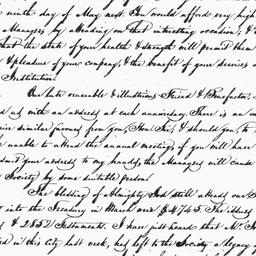 ninth day of May next. You would afford very high
Managers by attending on that interesting occasion, &
that the state of your health & strength will permit them
& pleasure of your company, & the benefit of your services a
Institution.
Our late venerable & illustrious Friend & Benefactor,
us with an address at each anniversary. There is an in
similar favours from you, Hon. Sir, & should you, to
unable to attend the annual meeting, if you will have
your address to my hands, the Managers will cause
Society by some suitable person.
The blessing of Almighty God still attends our
into the Treasury in March over $4745. The issues
& 2852 Testaments. I have just heard that Mr.
in this City last week, has left to the Society a legacy